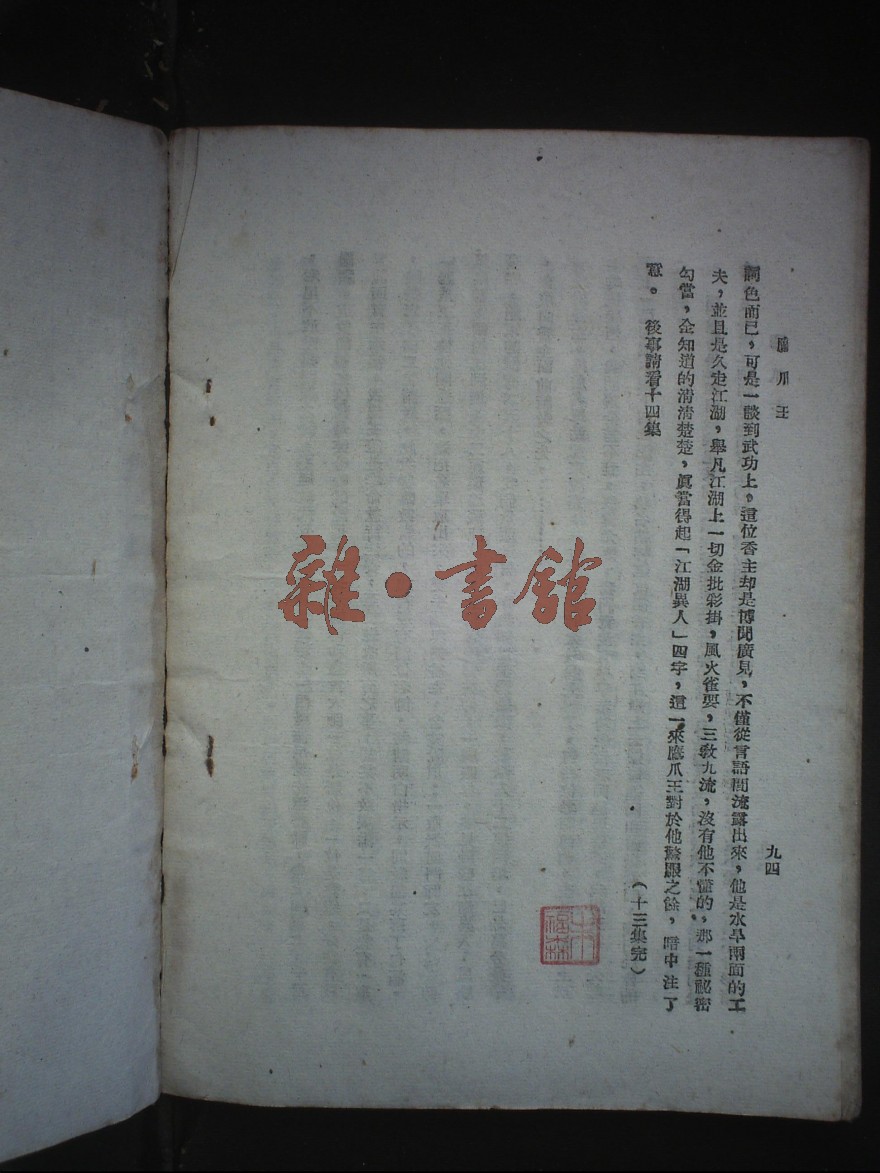 鷹爪王
九四
詞色而已，可是一談到武功上，這位香主却是博聞廣見，不僅從言語間流露出來，他是水旱兩面的工
夫，並且是久走江湖，舉凡江湖上一切金批彩掛，風火雀耍，三敎九流，沒有他不懂的，那一種祕密
勾當，全知道的淸淸楚楚，眞當得起「江湖異人」四字，這一來鷹爪王對於他驚服之餘，暗中注了
意。 後事請看十四集
（十三集完）
雜·書館